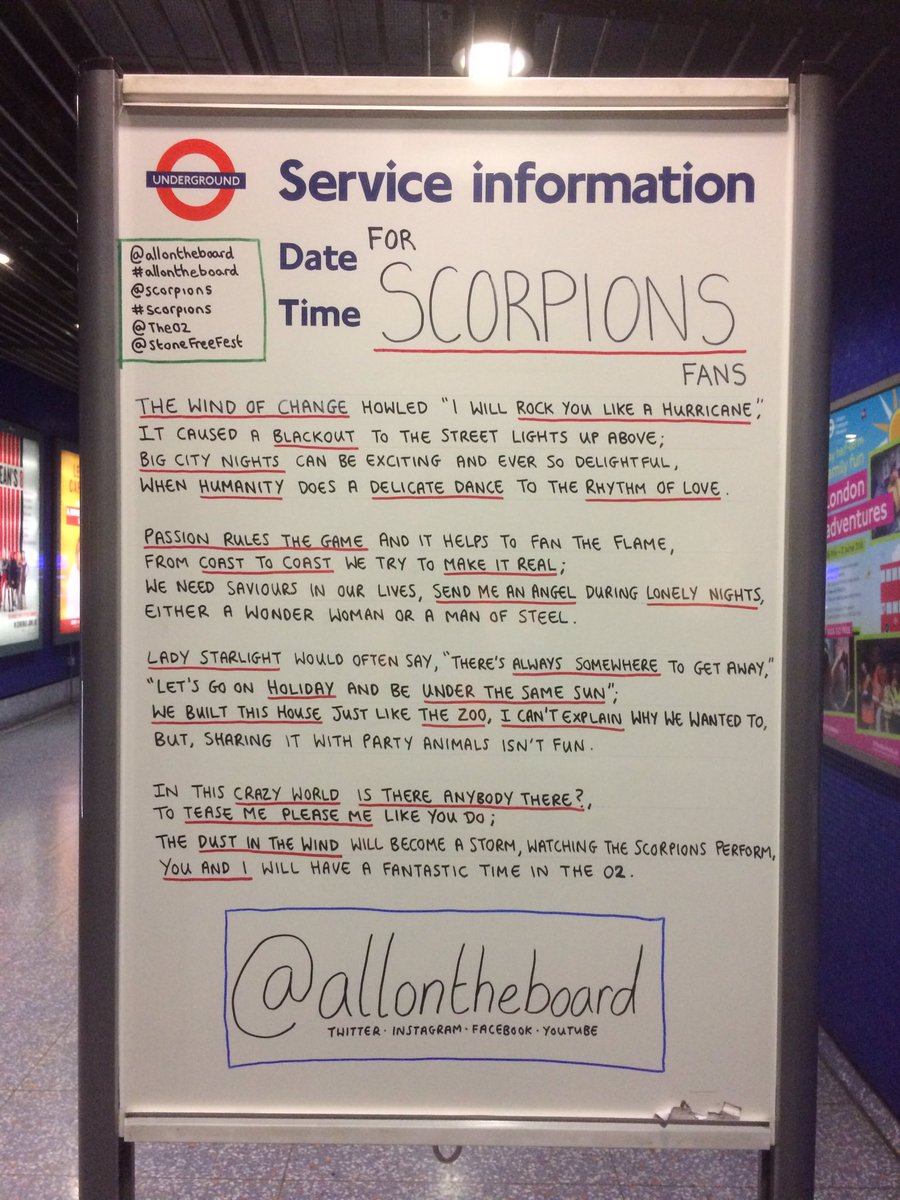 UNDERGROUND
Service information
Date FOR
Time SCORPIONS
FANS
@allontheboard
#allontheboard
@scorpions
#Scorpions
@TheO2
@StoneFreeFest
THE WIND OF CHANGE HOWLED "I WILL ROCK YOU LIKE A HURRICANE",
IT CAUSED A BLACKOUT TO THE STREET LIGHTS UP ABOVE;
BIG CITY NIGHTS CAN BE EXCITING AND EVER SO DELIGHTFUL,
WHEN HUMANITY DOES A DELICATE DANCE TO THE RHYTHM OF LOVE.
PASSION RULES THE GAME AND IT HELPS TO FAN THE FLAME,
FROM COAST TO COAST WE TRY TO MAKE IT REAL;
WE NEED SAVIOURS IN OUR LIVES, SEND ME AN ANGEL DURING LONELY NIGHTS,
EITHER A WONDER WOMAN OR A MAN OF STEEL.
LADY STARLIGHT WOULD OFTEN SAY, "THERE'S ALWAYS SOMEWHERE TO GET AWAY,"
"LET'S GO ON HOLIDAY AND BE UNDER THE SAME SUN";
WE BUILT THIS HOUSE JUST LIKE THE ZOO, I CAN'T EXPLAIN WHY WE WANTED TO,
BUT, SHARING IT WITH PARTY ANIMALS ISN'T FUN.
IN THIS CRAZY WORLD IS THERE ANYBODY THERE?,
TO TEASE ME PLEASE ME LIKE YOU DO;
THE DUST IN THE WIND WILL BECOME A STORM, WATCHING THE SCORPIONS PERFORM,
YOU AND I WILL HAVE A FANTASTIC TIME IN THE O2.
@allontheboard
TWITTER · INSTAGRAM · FACEBOOK · YOUTUBE
family fun
London
adventures